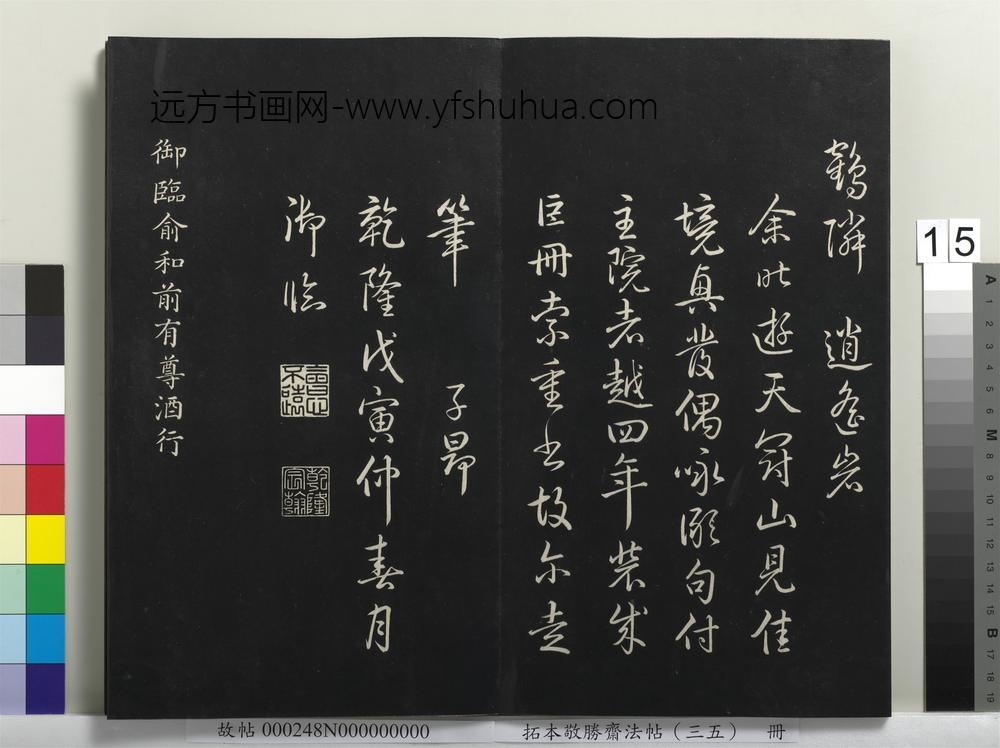 远方书画网-www.yfshuhua.com
鶴隣 逍遙岩
余昨遊天冠山見佳
境真發偶咏願句付
主院老越四年裝成
巨冊索重書故尔走
筆 子昂
乾隆戊寅仲春月
御臨
乾隆宸翰
御臨俞和前有尊酒行
15
A 1 2 3 4 5 6 M 8 9 10 11 12 13 14 15 B 17 18 19
故帖 000248N000000000
拓本敬勝齋法帖（三五） 冊